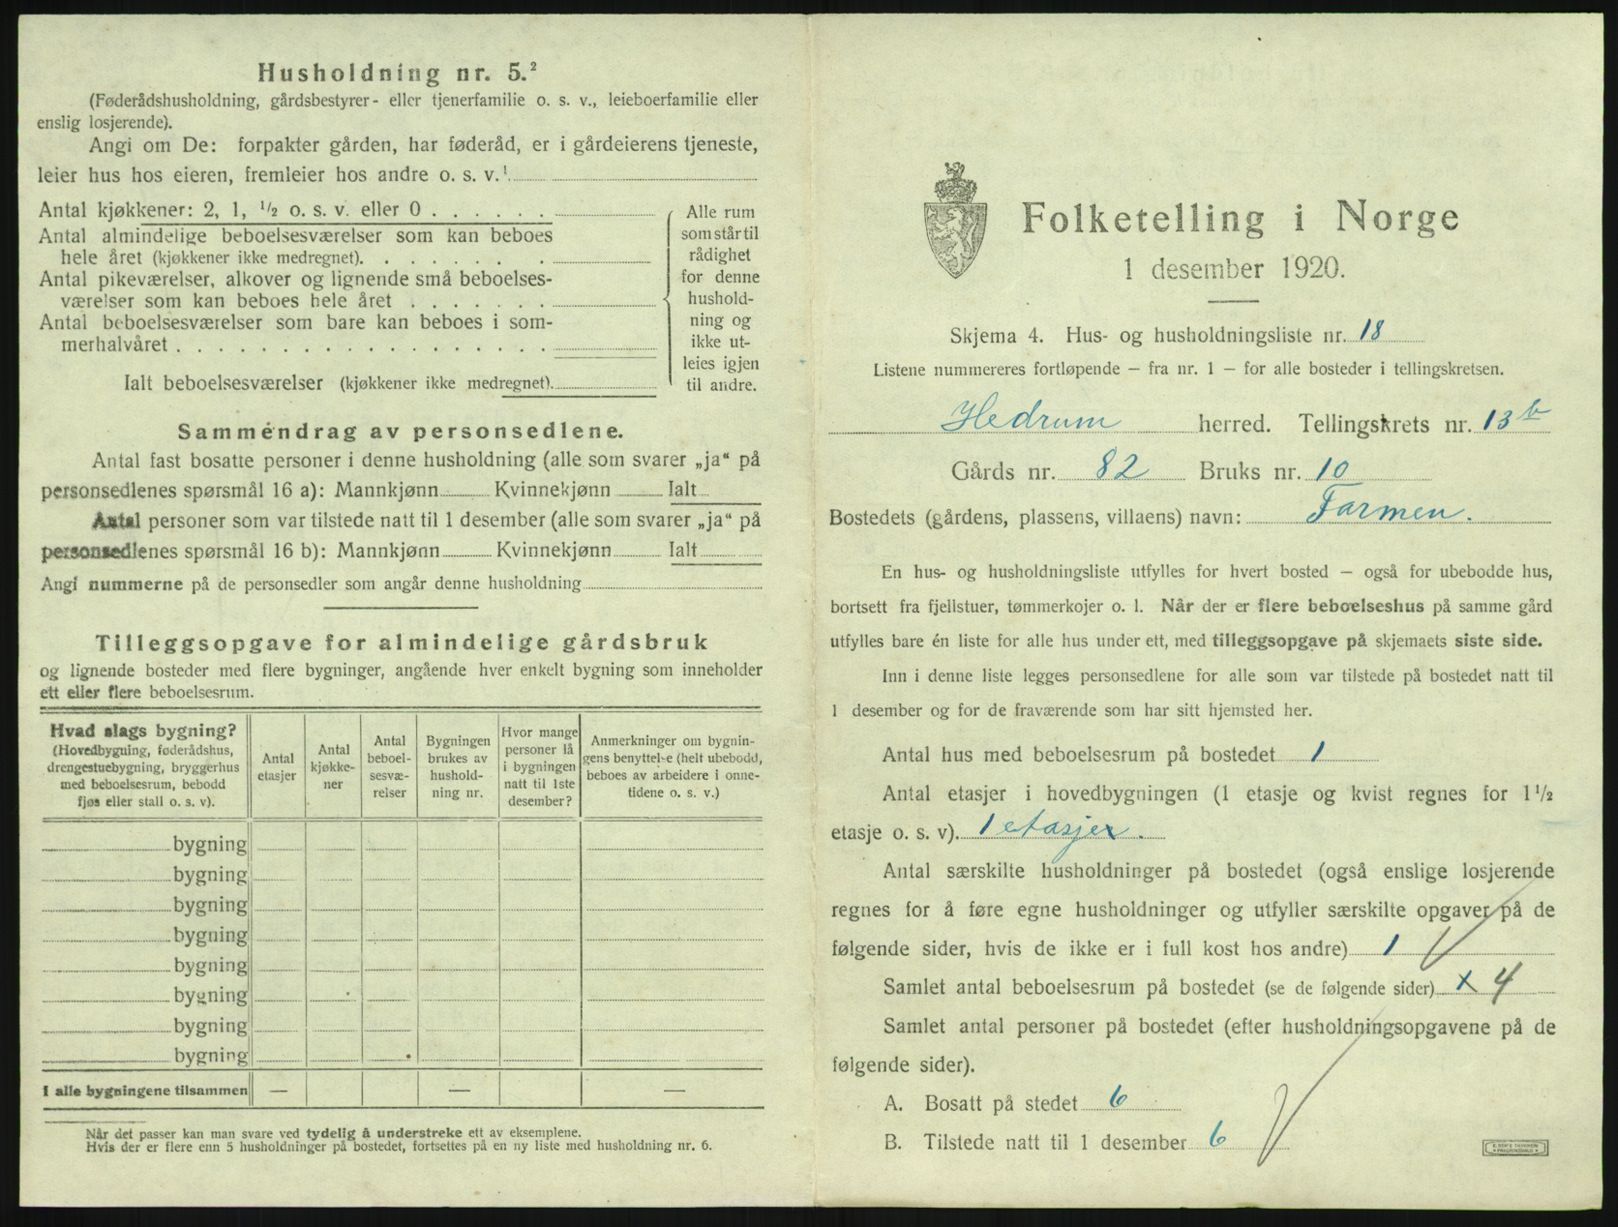 Husholdning nr. 5.²
(Føderådshusholdning, gårdsbestyrer- eller tjenerfamilie o. s. v., leieboerfamilie eller
enslig losjerende).
Angi om De: forpakter gården, har føderåd, er i gårdeierens tjeneste,
leier hus hos eieren, fremleier hos andre o. s. v.¹
Antal kjøkkener: 2, 1, ½ o. s. v. eller 0 . . . . . .
Antal almindelige beboelsesværelser som kan beboes
hele året (kjøkkener ikke medregnet). . . . . . . .
Antal pikeværelser, alkover og lignende små beboelses-
værelser som kan beboes hele året . . . . . . .
Antal beboelsesværelser som bare kan beboes i som-
merhalvåret . . . . . . . . . . . . . . . . . .
Ialt beboelsesværelser (kjøkkener ikke medregnet).
Alle rum
som står til
rådighet
for denne
hushold-
ning og
ikke ut-
leies igjen
til andre.
Sammendrag av personsedlene.
Antal fast bosatte personer i denne husholdning (alle som svarer „ja“ på
personsedlenes spørsmål 16 a): Mannkjønn Kvinnekjønn Ialt
Antal personer som var tilstede natt til 1 desember (alle som svarer „ja“ på
personsedlenes spørsmål 16 b): Mannkjønn Kvinnekjønn Ialt
Angi nummerne på de personsedler som angår denne husholdning
Tilleggsopgave for almindelige gårdsbruk
og lignende bosteder med flere bygninger, angående hver enkelt bygning som inneholder
ett eller flere beboelsesrum.
Hvad slags bygning?
(Hovedbygning, føderådshus,
drengestuebygning, bryggerhus
med beboelsesrum, bebodd
fjøs eller stall o. s. v).
Antal
etasjer
Antal
kjøkke-
ner
Antal
beboel-
sesvæ-
relser
Bygningen
brukes av
hushold-
ning nr.
Hvor mange
personer lå
i bygningen
natt til 1ste
desember?
Anmerkninger om bygnin-
gens benyttelse (helt ubebodd,
beboes av arbeidere i onne-
tidene o. s. v.)
bygning
bygning
bygning
bygning
bygning
bygning
bygning
bygning
I alle bygningene tilsammen — — —
Når det passer kan man svare ved tydelig å understreke ett av eksemplene.
Hvis der er flere enn 5 husholdninger på bostedet, fortsettes på en ny liste med husholdning nr. 6.
Folketelling i Norge
1 desember 1920.
Skjema 4. Hus- og husholdningsliste nr. 18
Listene nummereres fortløpende – fra nr. 1 – for alle bosteder i tellingskretsen.
Hedrum herred. Tellingskrets nr. 13 b
Gårds nr. 82 Bruks nr. 10
Bostedets (gårdens, plassens, villaens) navn: Farmen.
En hus- og husholdningsliste utfylles for hvert bosted – også for ubebodde hus,
bortsett fra fjellstuer, tømmerkojer o. l. Når der er flere beboelseshus på samme gård
utfylles bare én liste for alle hus under ett, med tilleggsopgave på skjemaets siste side.
Inn i denne liste legges personsedlene for alle som var tilstede på bostedet natt til
1 desember og for de fraværende som har sitt hjemsted her.
Antal hus med beboelsesrum på bostedet 1
Antal etasjer i hovedbygningen (1 etasje og kvist regnes for 1½
etasje o. s. v). 1 etasjer.
Antal særskilte husholdninger på bostedet (også enslige losjerende
regnes for å føre egne husholdninger og utfyller særskilte opgaver på de
følgende sider, hvis de ikke er i full kost hos andre) 1
Samlet antal beboelsesrum på bostedet (se de følgende sider) x 4
Samlet antal personer på bostedet (efter husholdningsopgavene på de
følgende sider).
A. Bosatt på stedet 6
B. Tilstede natt til 1 desember 6